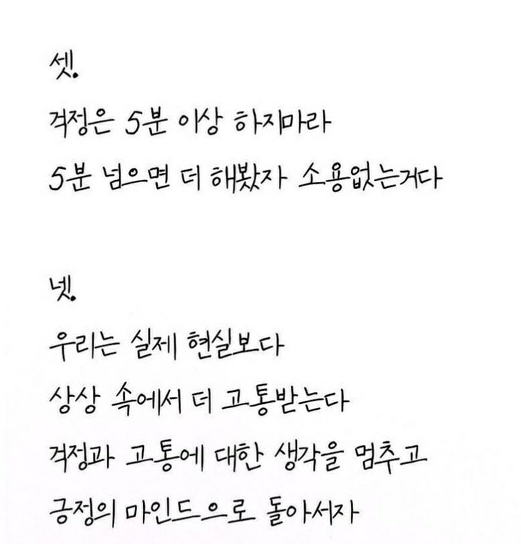 셋.
걱정은 5분 이상 하지마라
5분 넘으면 더 해봤자 소용없는거다
넷.
우리는 실제 현실보다
상상 속에서 더 고통받는다
걱정과 고통에 대한 생각을 멈추고
긍정의 마인드으로 돌아서자